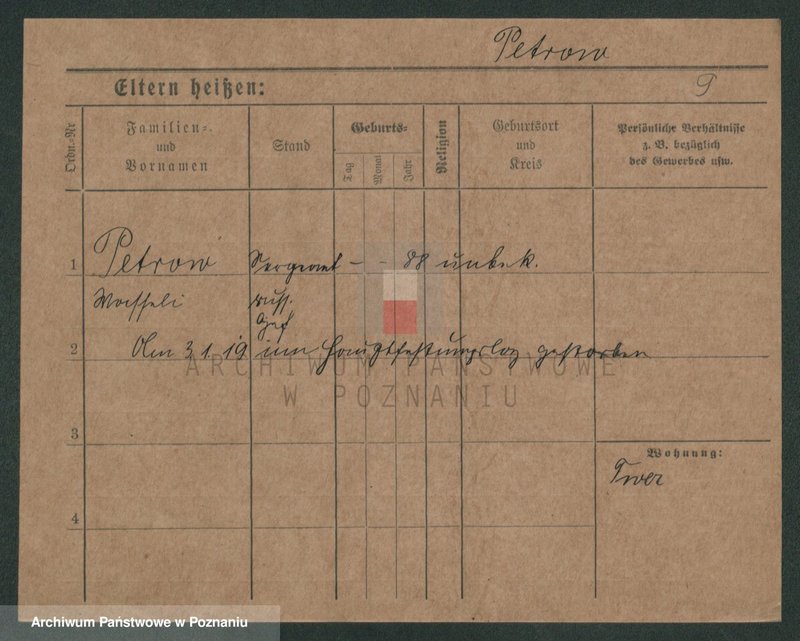 Petrow
Eltern heißen:
P
Ordn.-Nr
Familien-
und
Vornamen
Stand
Geburts-
Tag
Monat
Jahr
Religion
Geburtsort
und
Kreis
Persönliche Verhältnisse
z. B. bezüglich
des Gewerbes usw.
1 Petrow Sergeant - - 88 unbek.
Wasseli russ.
2 Am 3.1.19 im Hauptfestungslaz gestorben
ARCHIWUM PAŃSTWOWE
W POZNANIU
3
Wohnung:
Twer
4
Archiwum Państwowe w Poznaniu